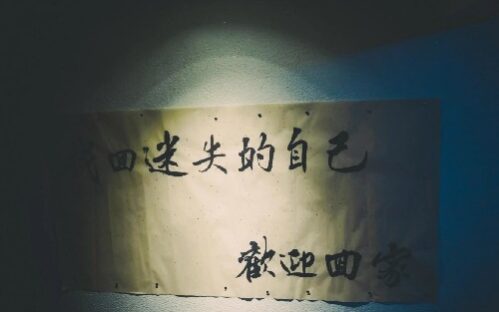 找回迷失的自己
歡迎回家